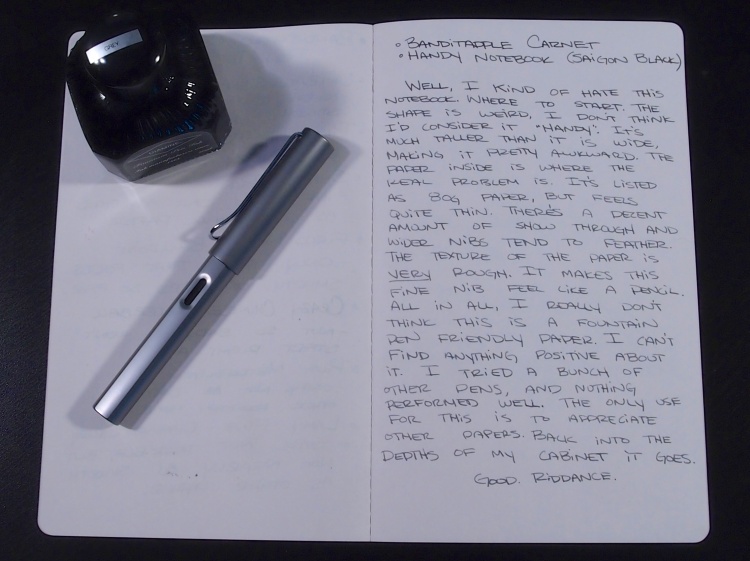 GREY
• BANDITAPPLE CARNET
• HANDY NOTEBOOK (SAIGON BLACK)
WELL, I KIND OF HATE THIS
NOTEBOOK. WHERE TO START. THE
SHAPE IS WEIRD, I DON'T THINK
I'D CONSIDER IT "HANDY". IT'S
MUCH TALLER THAN IT IS WIDE,
MAKING IT PRETTY AWKWARD. THE
PAPER INSIDE IS WHERE THE
REAL PROBLEM IS. IT'S LISTED
AS 80G PAPER, BUT FEELS
QUITE THIN. THERE'S A DECENT
AMOUNT OF SHOW THROUGH AND
WIDER NIBS TEND TO FEATHER.
THE TEXTURE OF THE PAPER IS
VERY ROUGH. IT MAKES THIS
FINE NIB FEEL LIKE A PENCIL.
ALL IN ALL, I REALLY DON'T
THINK THIS IS A FOUNTAIN
PEN FRIENDLY PAPER. I CAN'T
FIND ANYTHING POSITIVE ABOUT
IT. I TRIED A BUNCH OF
OTHER PENS, AND NOTHING
PERFORMED WELL. THE ONLY USE
FOR THIS IS TO APPRECIATE
OTHER PAPERS. BACK INTO THE
DEPTHS OF MY CABINET IT GOES.
GOOD RIDDANCE.